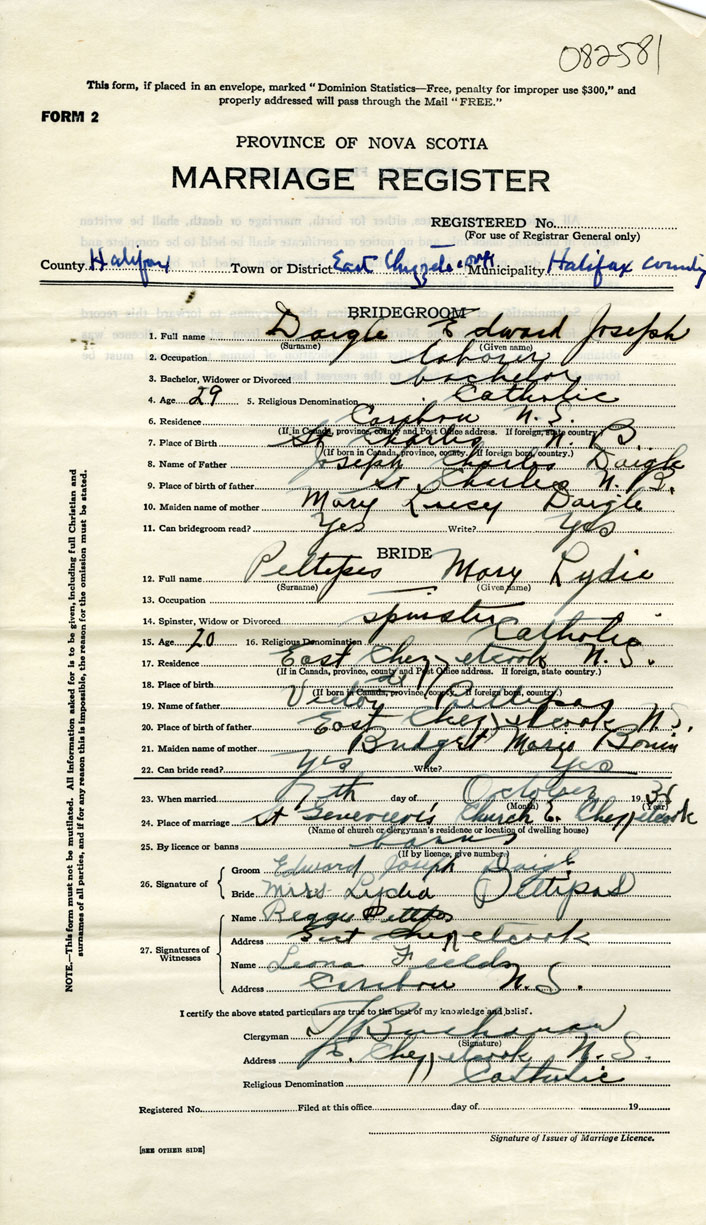 082581
This form, if placed in an envelope, marked "Dominion Statistics—Free, penalty for improper use $300," and
properly addressed will pass through the Mail "FREE."
FORM 2
PROVINCE OF NOVA SCOTIA
MARRIAGE REGISTER
REGISTERED No.
(For use of Registrar General only)
County Halifax Town or District East Municipality Halifax County
BRIDEGROOM
1. Full name Daigle Edward Joseph
(Surname) (Given name)
2. Occupation laborer
3. Bachelor, Widower or Divorced bachelor
4. Age 29 5. Religious Denomination Catholic
6. Residence Caribou N. S.
(If in Canada, province, county and Post Office address. If foreign, state country.)
7. Place of Birth St Charles N. B.
(If born in Canada, province, county. If foreign born, country.)
8. Name of Father Joseph Charles Daigle
9. Place of birth of father St Charles N. B.
10. Maiden name of mother Mary Daigle
11. Can bridegroom read? Yes Write? Yes
BRIDE
12. Full name Pettipas Mary Lydia
(Surname) (Given name)
13. Occupation —
14. Spinster, Widow or Divorced spinster
15. Age 20 16. Religious Denomination Catholic
17. Residence East Chezzetcook N. S.
(If in Canada, province, county and Post Office address. If foreign, state country.)
18. Place of birth do
(If born in Canada, province, county. If foreign born, country.)
19. Name of father Victor Pettipas
20. Place of birth of father East Chezzetcook N. S.
21. Maiden name of mother Bridget Marie Bonin
22. Can bride read? Yes Write? Yes
23. When married 7th day of October 19 35
(Month) (Year)
24. Place of marriage St Genevieve's Church E. Chezzetcook
(Name of church or clergyman's residence or location of dwelling house)
25. By licence or banns banns
(If by licence, give number)
26. Signature of
Groom Edward Joseph Daigle
Bride Miss Lydia Pettipas
27. Signatures of
Witnesses
Name Reggy Pettipas
Address East Chezzetcook
Name Leona Fields
Address Caribou N. S.
I certify the above stated particulars are true to the best of my knowledge and belief.
Clergyman Buchanan
(Signature)
Address E. Chezzetcook N. S.
Religious Denomination Catholic
Registered No. Filed at this office day of 19
Signature of Issuer of Marriage Licence.
[SEE OTHER SIDE]
NOTE.—This form must not be mutilated. All information asked for is to be given, including full Christian and
surnames of all parties, and if for any reason this is impossible, the reason for the omission must be stated.